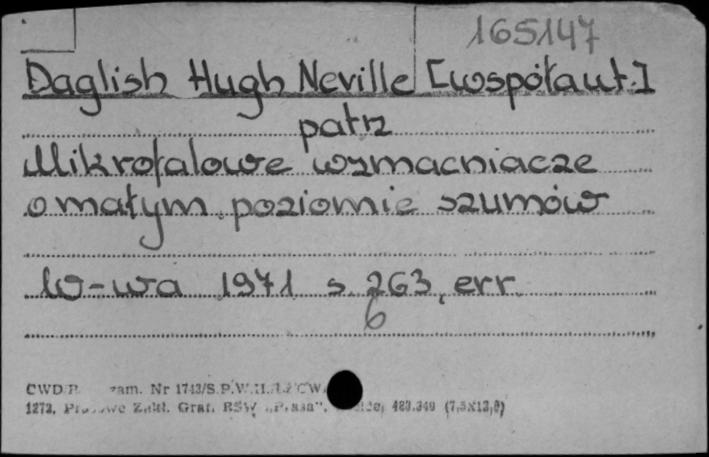 165147
Daglish Hugh Neville [współaut.]
patrz
Mikrofalowe wzmacniacze
o małym poziomie szumów
W-wa 1971 s. 263, err.
6
zam. Nr 1743/S.P.W.
1273, Zakł. Graf. RSW „Prasa", 483.340 (7,5X12,5)